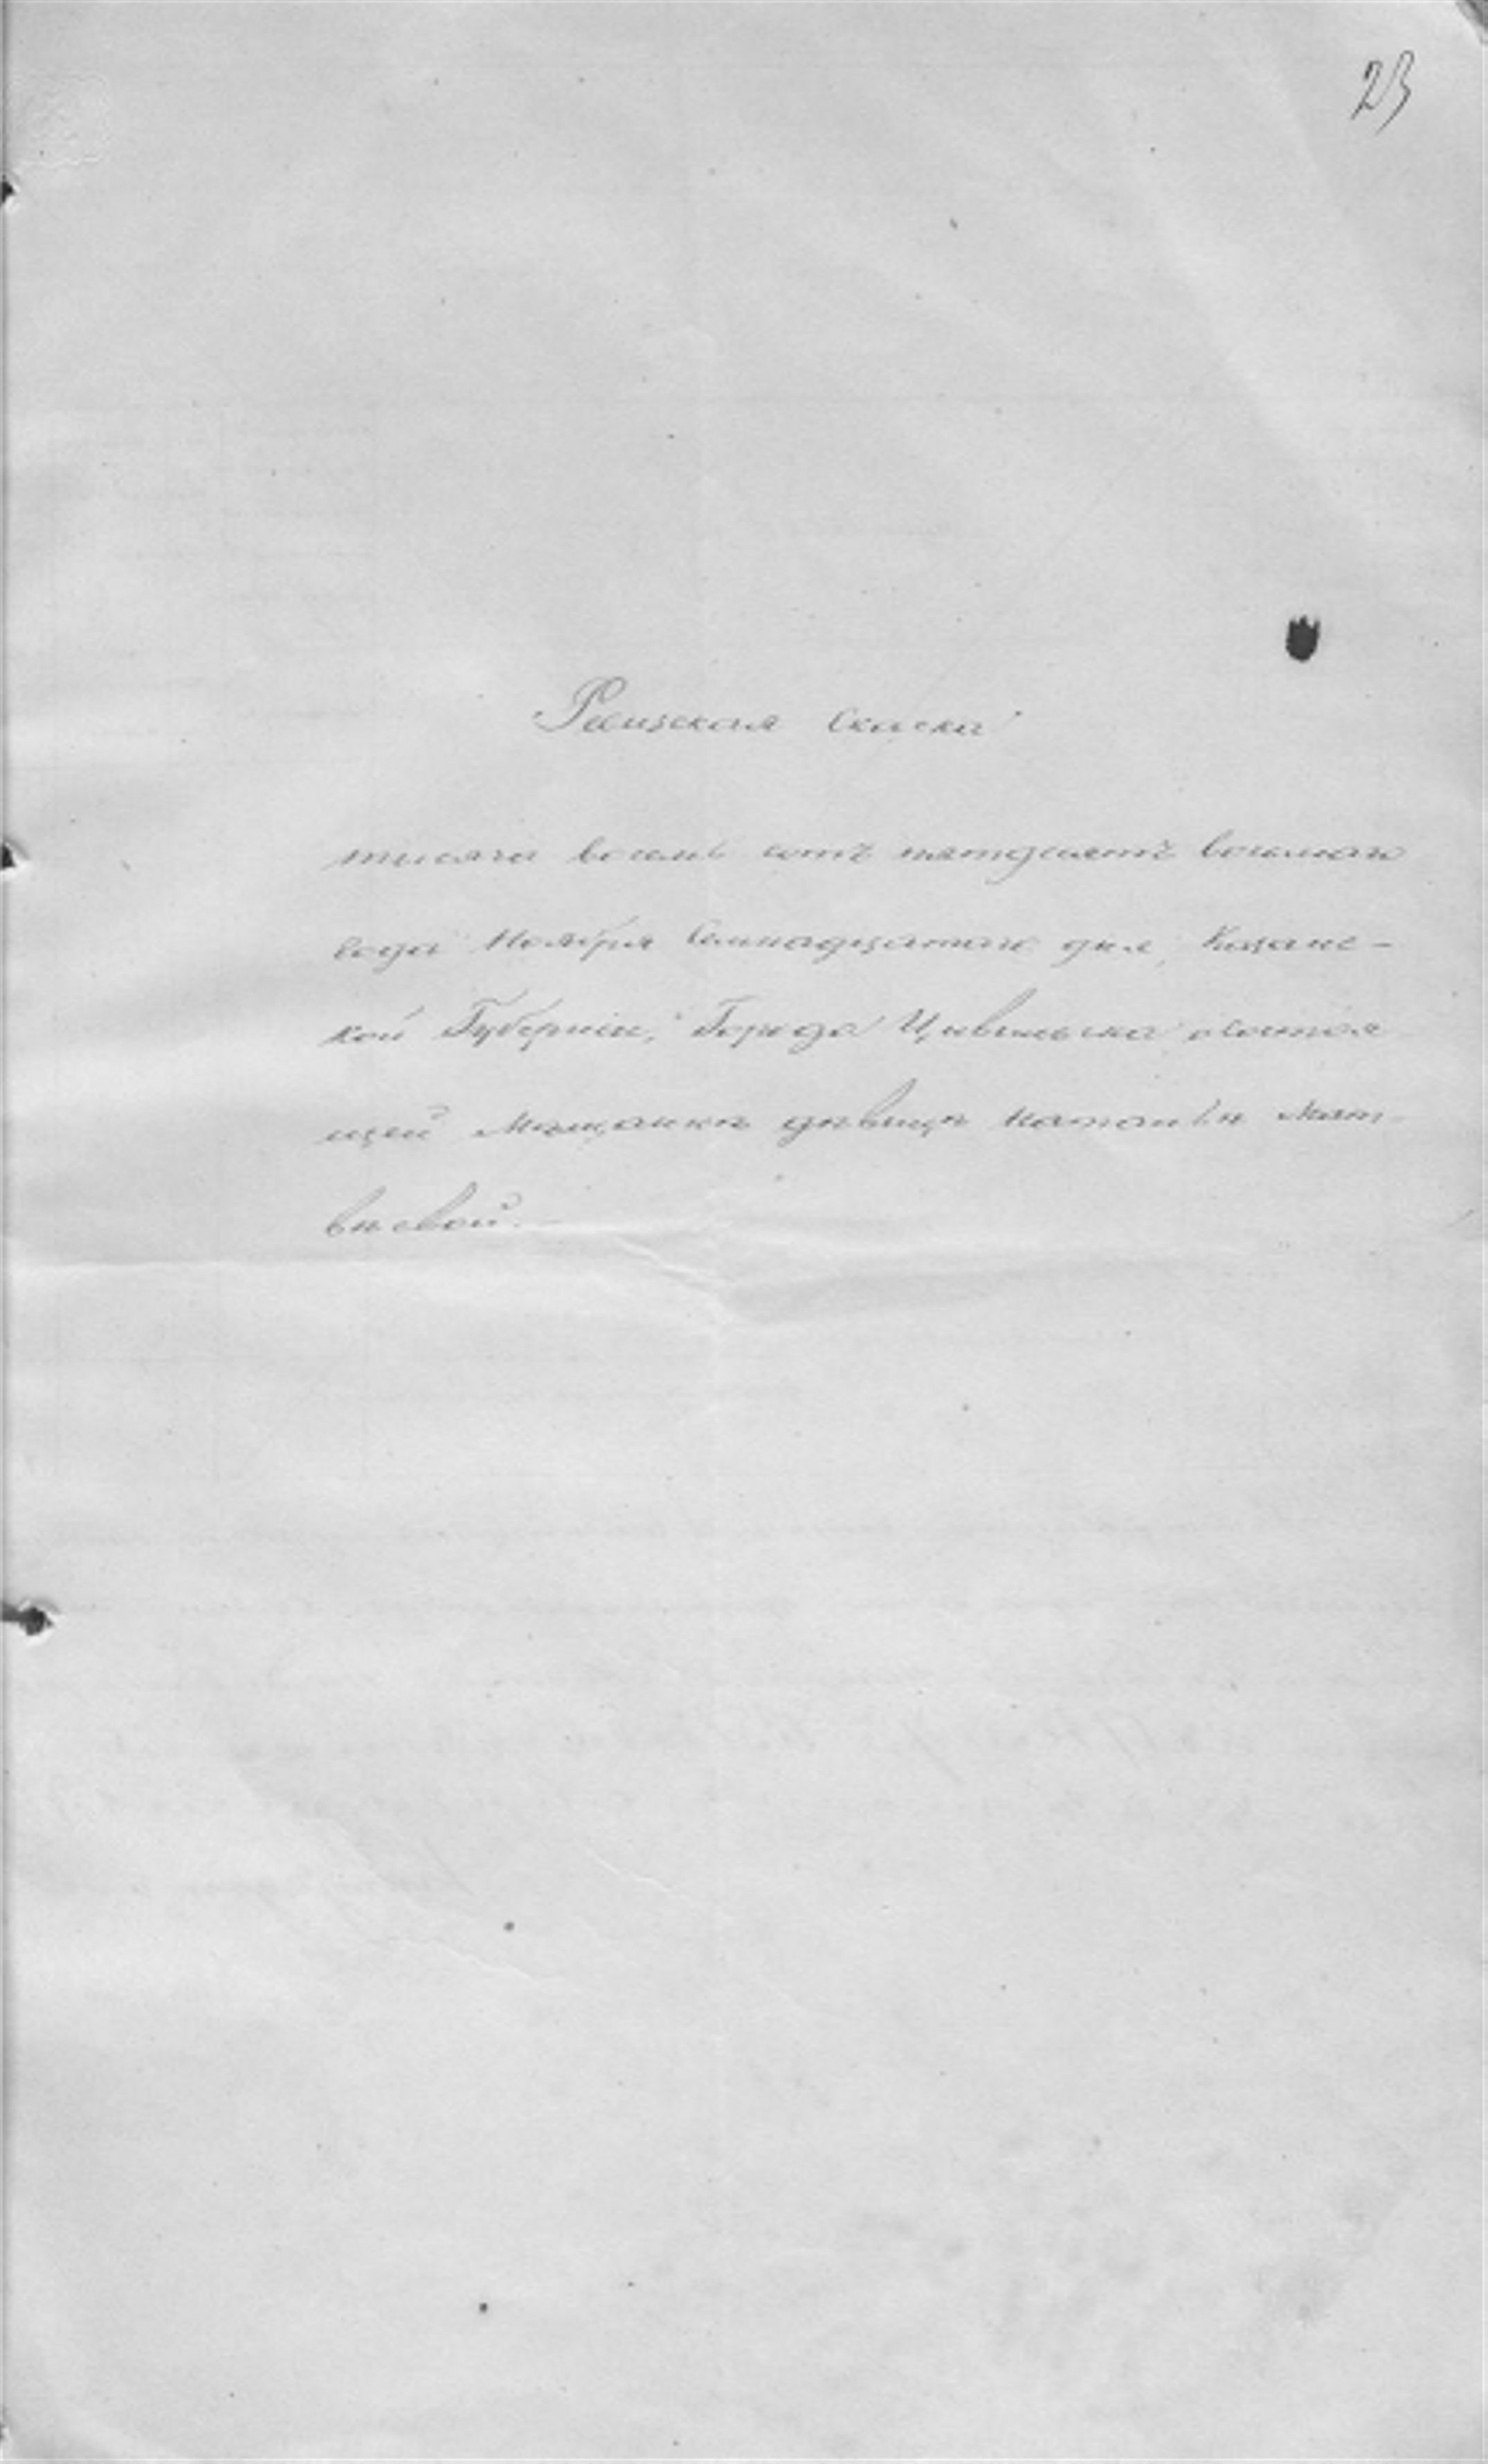 23
Ревизская Скаска
тысяча восемь сотъ пятдесятъ восьмаго
года Ноября Семнадцатаго дня, Казанс-
кой Губерніи, Города Цивильска о состоя
щей Мещанки дѣвицы Наталіи Мат-
вѣевой.